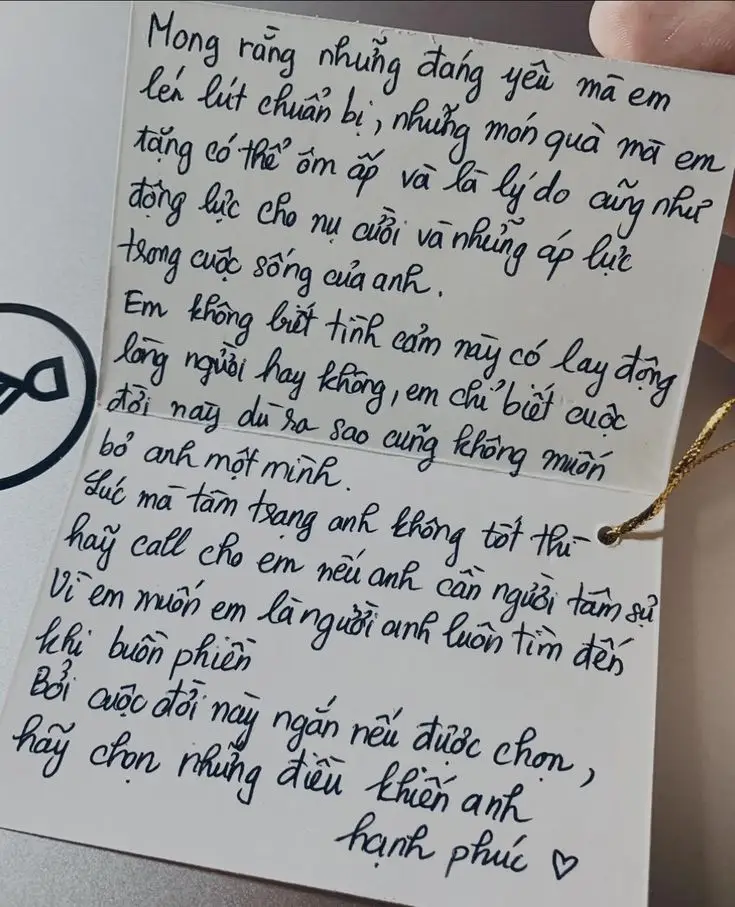 Mong rằng những đáng yêu mà em
lén lút chuẩn bị, những món quà mà em
tặng có thể ôm ấp và là lý do cũng như
động lực cho nụ cười và những áp lực
trong cuộc sống của anh.
Em không biết tình cảm này có lay động
lòng người hay không, em chỉ biết cuộc
đời này dù ra sao cũng không muốn
bỏ anh một mình.
Lúc mà tâm trạng anh không tốt thì
hãy call cho em nếu anh cần người tâm sự
Vì em muốn em là người anh luôn tìm đến
khi buồn phiền
Bởi cuộc đời này ngắn nếu được chọn,
hãy chọn những điều khiến anh
hạnh phúc ♡